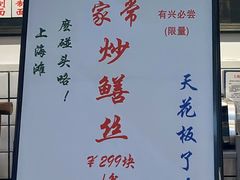 上海滩
麽碰头咯！
家常
炒鳝丝
￥299块
有兴必尝
(限量)
天花板了